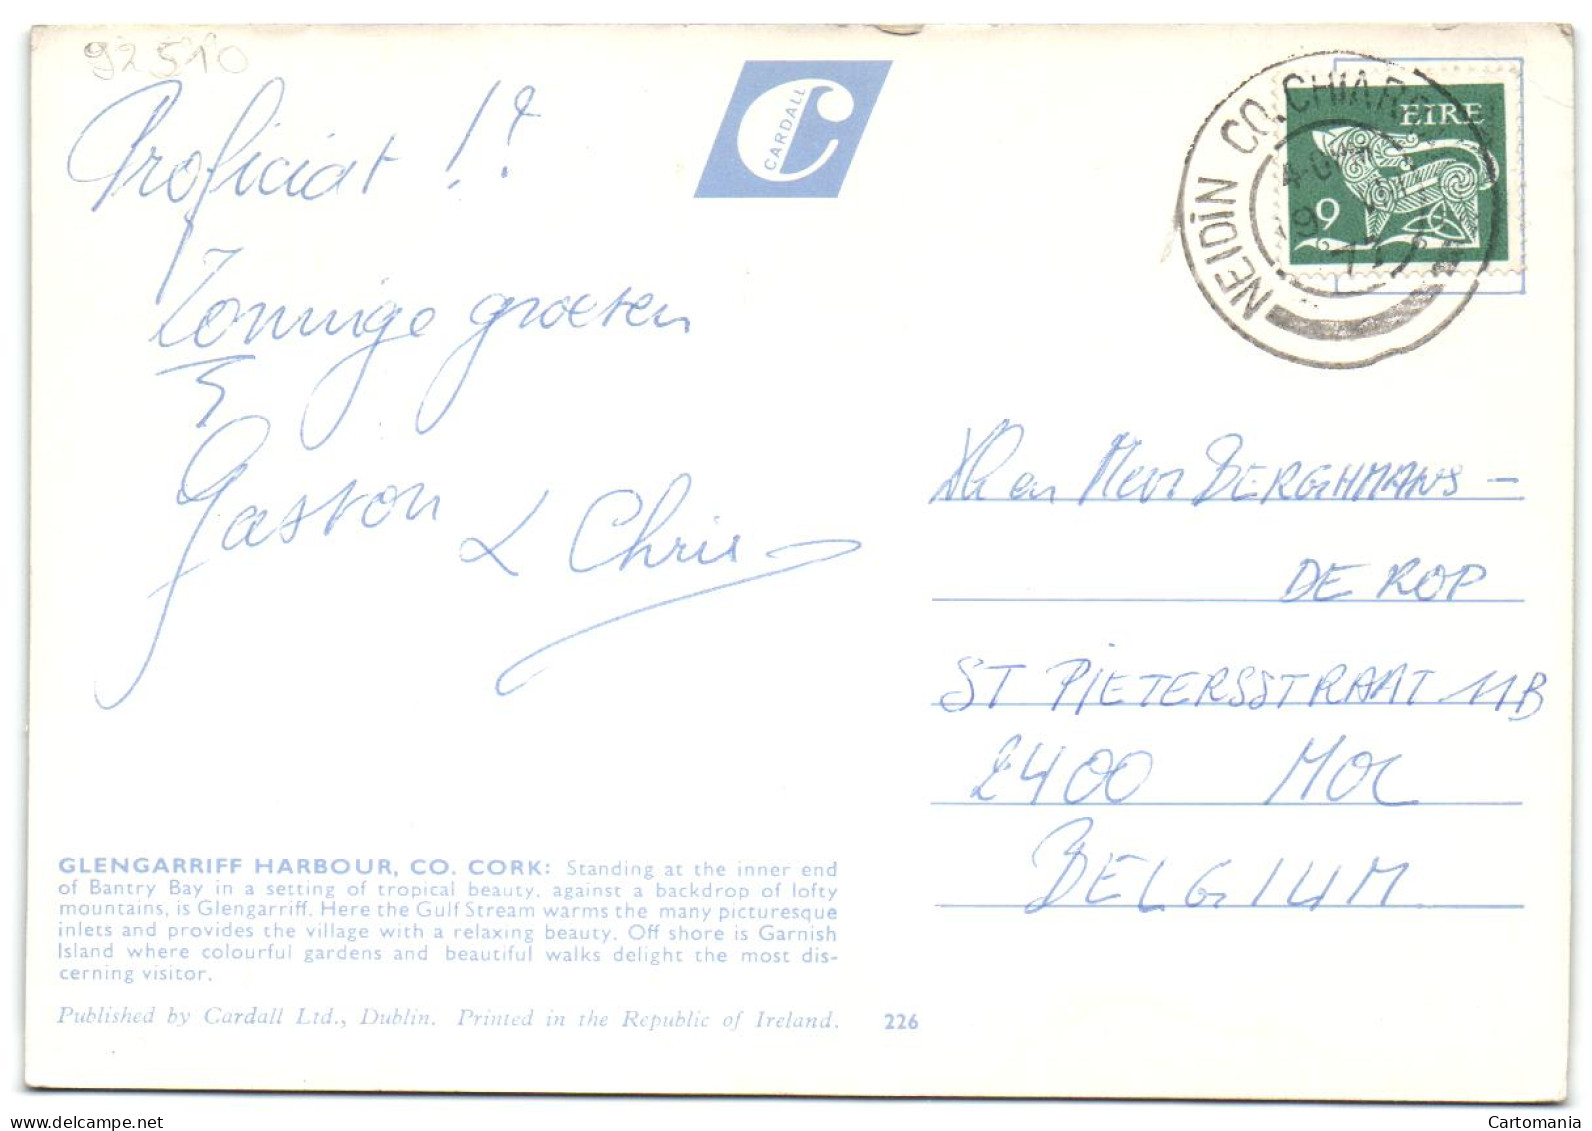 92510
Proficiat !?
Zonnige groeten
Gaston & Chris
CARDALL
NEIDÍN CO. CHIARRAÍ
ÉIRE
9
Dhr en Mevr BERGHMANS -
DE ROP
ST PIETERSSTRAAT 11B
2400 MOL
BELGIUM
GLENGARRIFF HARBOUR, CO. CORK: Standing at the inner end
of Bantry Bay in a setting of tropical beauty, against a backdrop of lofty
mountains, is Glengarriff. Here the Gulf Stream warms the many picturesque
inlets and provides the village with a relaxing beauty. Off shore is Garnish
Island where colourful gardens and beautiful walks delight the most dis-
cerning visitor.
Published by Cardall Ltd., Dublin. Printed in the Republic of Ireland. 226
Cartomania